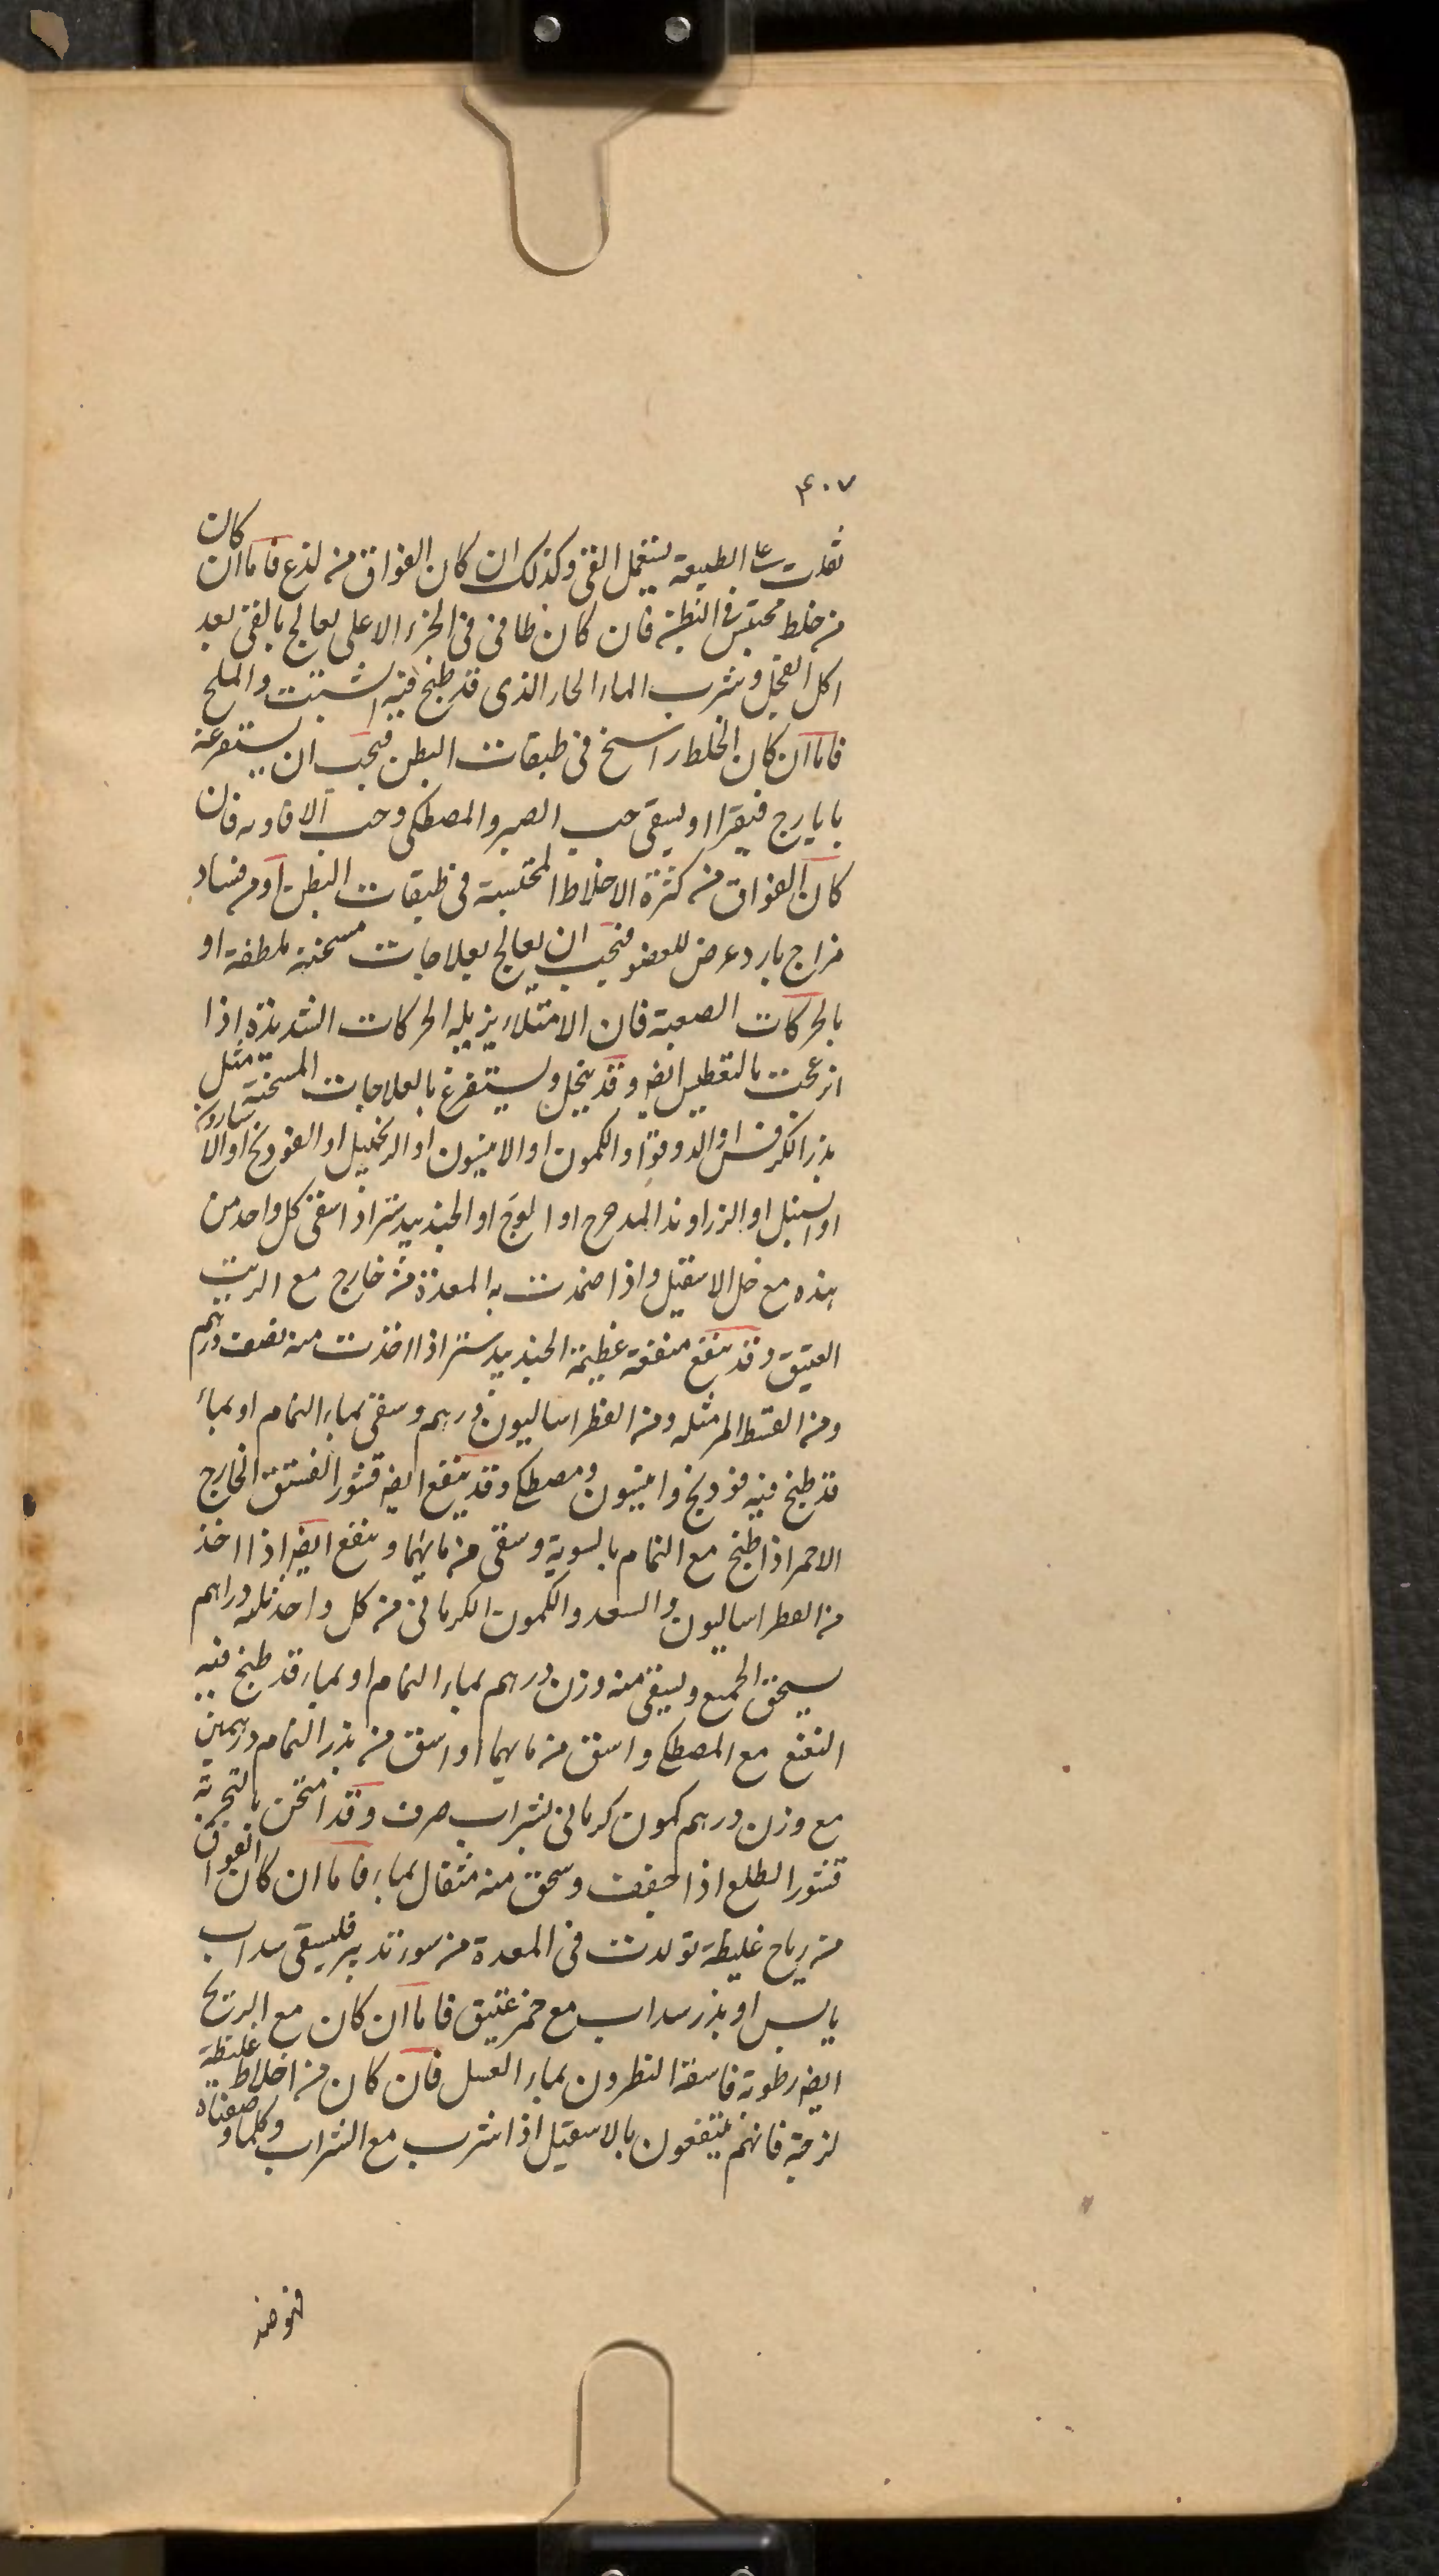 ۴۰۷
ثقلت على الطبيعة يستعمل القى وكذلك ان كان الفواق من لذع فاما ان كان
من خلط محتبس فى البطن فان كان طافى فى الجزء الاعلى يعالج بالقى بعد
اكل الفجل وشرب الماء الحار الذى قد طبخ فيه الشبت والملح
فاما ان كان الخلط راسخ فى طبقات البطن فيجب ان يستفرغه
بايارج فيقرا او يسقى حب الصبر والمصطكى وحب الافاويه فان
كان الفواق من كثرة الاخلاط المحتبسة فى طبقات البطن او من فساد
مزاج بارد عرض للعضو فيجب ان يعالج بعلاجات مسخنة ملطفة او
بالحركات الصعبة فان الامتلاء يزيله الحركات الشديدة اذا
انزعجت بالتعطيس ايضه وقد ينحل ويستفرغ بالعلاجات المسخنة مثل
بزر الكرفس او الدوقوا والكمون او الانيسون او الزنجبيل او الفودنج او الاسارون
او السنبل او الزراوند المدحرج او الوج او الجندبيدستر اذا سقى كل واحد من
هذه مع خل الاسقيل واذا ضمدت به المعدة من خارج مع الزيت
العتيق وقد ينفع منفعة عظيمة الجندبيدستر اذا اخذت منه نصف درهم
ومن القسط المر مثله ومن الفطراساليون درهم وسقى بماء النمام او بماء
قد طبخ فيه فودنج وانيسون ومصطكى وقد ينفع ايضه قشور الفستق الخارج
الاحمر اذا طبخ مع النمام بالسوية وسقى من مائهما وينفع ايضه اذا اخذ
من الفطراساليون والسعد والكمون الكرمانى من كل واحد ثلثه دراهم
يسحق الجميع ويسقى منه وزن درهم بماء النمام او بماء قد طبخ فيه
النعنع مع المصطكى واسق من مائهما او اسق من بزر النمام درهمين
مع وزن درهم كمون كرمانى بشراب صرف وقد امتحن بالتجربة
قشور الطلع اذا جففت وسحق منه مثقال بماء فاما ان كان الفواق
من رياح غليظة تولدت فى المعدة من سوء تدبير فليسقى سداب
يابس او بذر سداب مع خمر عتيق فاما ان كان مع الريح
ايضه رطوبة فاسقه النطرون بماء العسل فان كان من اخلاط غليظة
لزجة فانهم ينتفعون بالاسقيل اذا شرب مع الشراب وكلما وصفناه